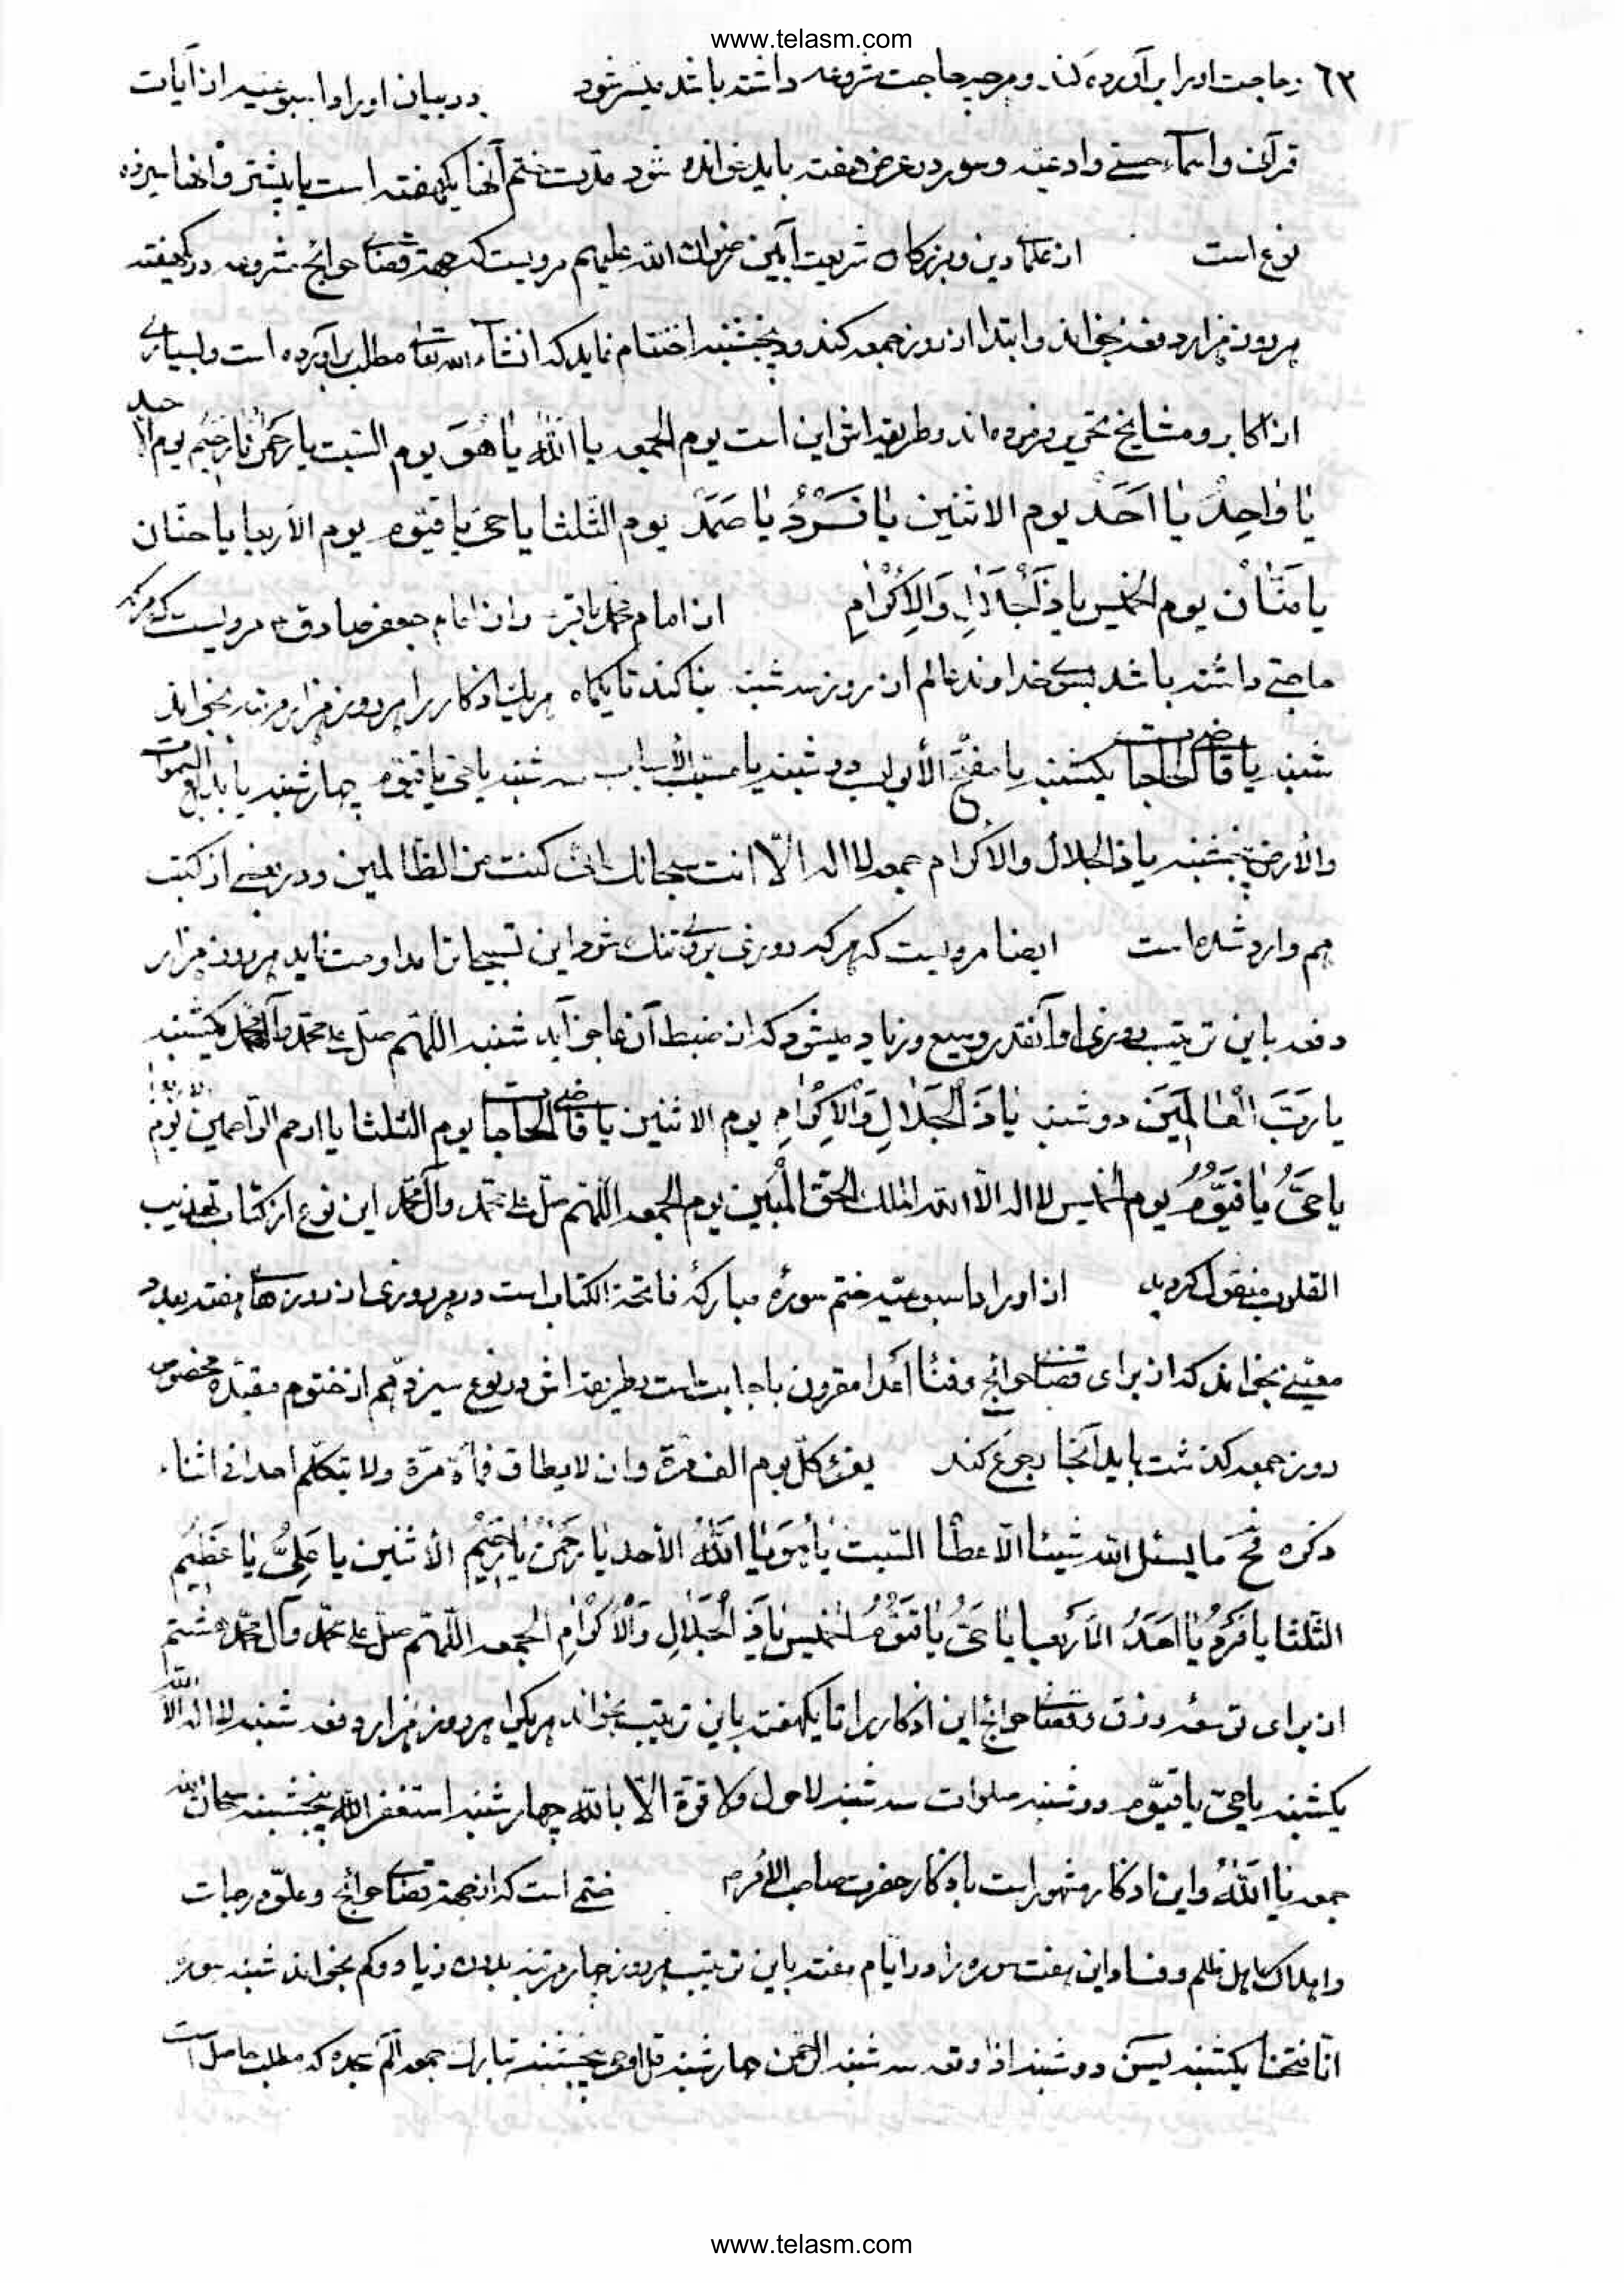 www.telasm.com
٦٣ حاجت او را برآورده کند و هر چه حاجت مشروعه داشته باشد میسر شود در بیان اوراد اسبوعیه از آیات
قرآن و اسماء حسنی و ادعیه و سور در عرض هفته باید خوانده شود مدت ختم آنها یکهفته است یا بیشتر و آنها سیزده
نوع است از علماء دین و بزرگان شریعت آیین رضوان الله علیهم مرویست که جهة قضای حوائج مشروعه در یکهفته
هر روز هزار دفعه بخواند و ابتدا از روز جمعه کند و پنجشنبه اختتام نماید که انشاء الله تعالی مطلب برآورده است و بسیاری
از اکابر و مشایخ تحریر فرموده اند و طریقه اش این است یوم الجمعه یا اللهُ یا هُوَ یوم السبت یا رَحمنُ یا رَحیمُ یوم الاحد
یا واحِدُ یا اَحَدُ یوم الاثنین یا فَرْدُ یا صَمَدُ یوم الثلثا یا حی یا قیوم یوم الأربعا یا حنّان
یا مَنّان یوم الخمیس یا ذَاالجَلالِ وَالإکْرامِ از امام محمد باقر و از امام جعفر صادق ع مرویست که هر که
حاجتی داشته باشد بسوی خداوند عالم از روز سه شنبه بنا کند تا یکماه هر یک اذکار را هر روز هزار مرتبه بخواند
شنبه یا قاضی الحاجات یکشنبه یا مفتح الأبواب دوشنبه یا مسبب الأسباب سه شنبه یا حی یا قیوم چهارشنبه یا بدیع السموات
والأرض پنجشنبه یا ذالجلال والاکرام جمعه لا اله الّا انت سبحانک انی کنت من الظالمین و در بعضی از کتب
هم وارد شده است ایضا مرویست که هر که روزی بر وی تنک شود این تسبیحات را مداومت نماید هر روز هزار
دفعه باین ترتیب روزی او آنقدر وسیع و زیاد میشود که از ضبط آن عاجز آید شنبه اللهم صل علی محمد وآل محمد یکشنبه
یا رَبَّ الْعالَمینَ دوشنبه یا ذَالْجَلالِ وَالإکْرامِ یوم الاثنین یا قاضی الحاجات یوم الثلثا یا ارحم الراحمین یوم الاربعا
یا حَیُّ یا قَیُّومُ یوم الخمیس لا اله الّا الله الملک الحق المُبین یوم الجمعه اللهم صل علی محمد وآل محمد این نوع از کتاب تهذیب
القلوب منقول کردید از اوراد اسبوعیه ختم سورهٔ مبارکهٔ فاتحة الکتابست در هر روزی از روزهای هفته بعدد
معینی بخواند که از برای قضای حوائج و فنای اعدا مقرون باجابت است و طریقه اش در نوع سیزدهم از ختوم مقیده مخصوص
روز جمعه کذشت باید آنجا رجوع کند یقرء کل یوم الف مرة وان لا یطاق فمأة مرّة ولا یتکلّم احدا فی اثناء
ذکره فح ما یسئل الله شیئا الّا عطا السبت یا هُوَ یا اَللهُ الأحد یا رَحمنُ یا رَحیمُ الأثنین یا عَلیُّ یا عَظیمُ
الثلثا یا فَرْدُ یا اَحَدُ الأربعا یا حَیُّ یا قَیُّومُ الخمیس یا ذَالْجَلالِ وَالْأکْرامِ الجمعه اللّهم صل علی محمد وآل محمد هشتم
از برای توسعه رزق و قضای حوائج این اذکار را تا یکهفته باین ترتیب بخواند هر یکی را هر روز هزار دفعه شنبه لا اله الّا الله
یکشنبه یا حی یا قیّوم دوشنبه صلوات سه شنبه لا حول ولا قوة الّا بالله چهارشنبه استغفر الله پنجشنبه سبحان الله
جمعه یا اَللهُ واین اذکار مشهور است باذکار حضرت صاحب الأمر ختمی است که از جهة قضای حوائج و علوّ درجات
و اهلاک اهل ظلم و فساد این هفت سوره را در ایام هفته باین ترتیب هر روز چهار مرتبه بدون زیاد و کم بخواند شنبه سورهٔ
انا فتحنا یکشنبه یسن دوشنبه اذا وقعه سه شنبه الرحمن چهارشنبه قل اوحی پنجشنبه تبارک جمعه الم سجده که مطلب حاصل است
www.telasm.com